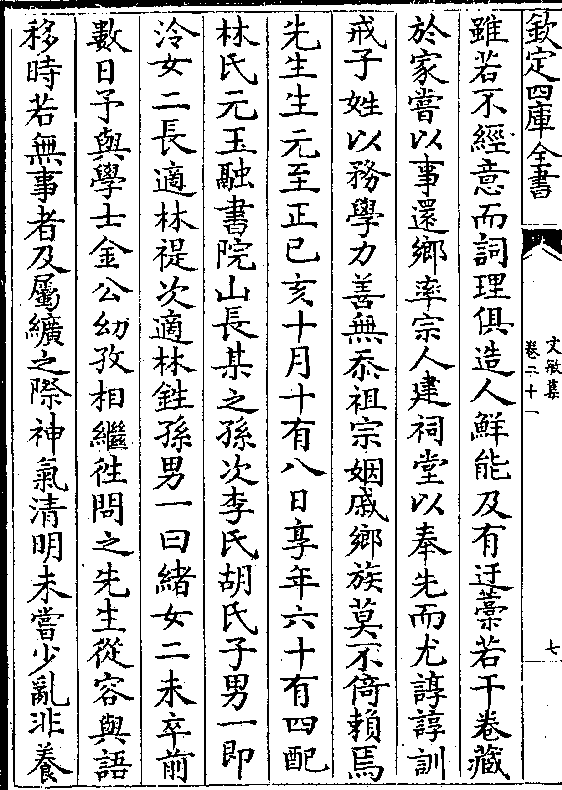 欽定四庫全書
文敏集
卷二十一
七
雖若不經意而詞理俱造人鮮能及有迂藁若干卷藏
於家嘗以事還鄉率宗人建祠堂以奉先而尤諄諄訓
戒子姓以務學力善無忝祖宗姻戚鄉族莫不倚賴焉
先生生元至正己亥十月十有八日享年六十有四配
林氏元玉融書院山長某之孫次李氏胡氏子男一即
泠女二長適林禔次適林鉎孫男一曰緒女二未卒前
數日予與學士金公幼孜相繼徃問之先生從容與語
移時若無事者及屬纊之際神氣清明未嘗少亂非養